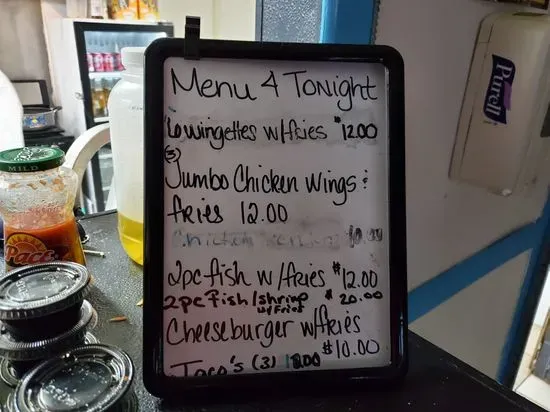 Menu 4 Tonight
6 wingettes w/fries $12.00
(3)
Jumbo Chicken Wings &
fries 12.00
Chicken 10.00
2pc fish w/fries $12.00
2pc Fish/shrimp $20.00
w/fries
Cheeseburger w/fries
$10.00
Taco's (3)
MILD
Pace
Purell